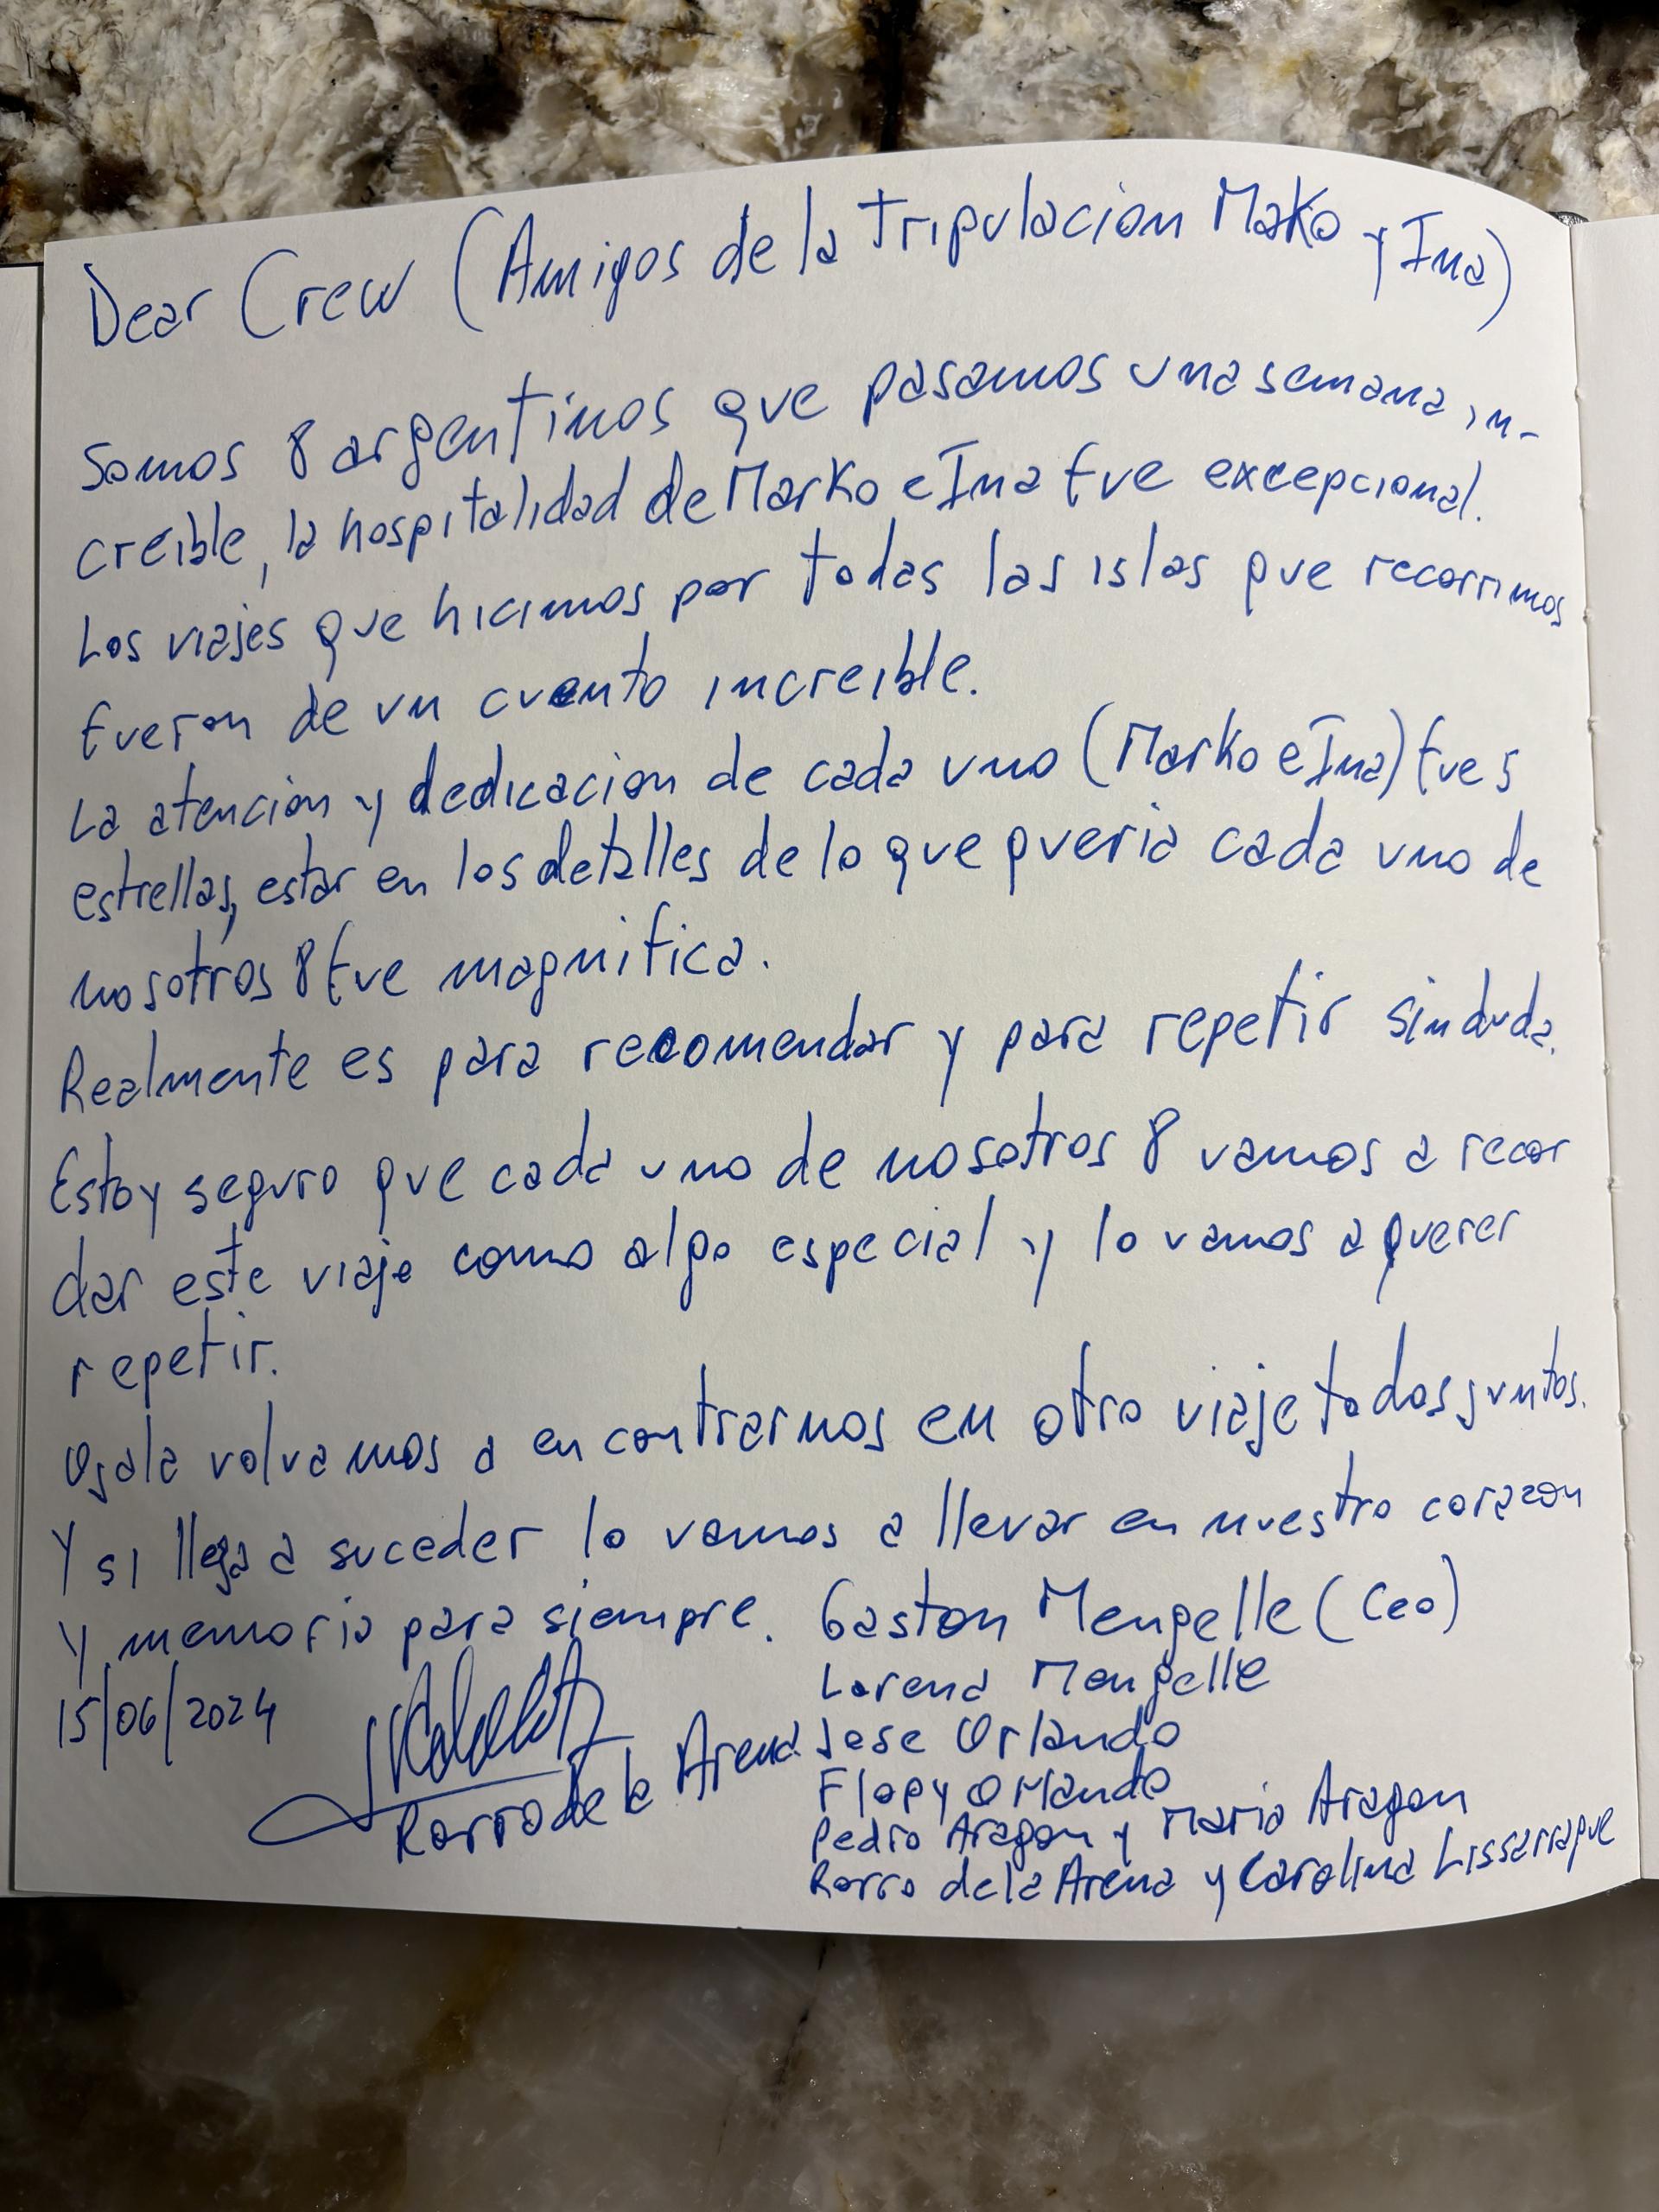 Dear Crew (Amigos de la Tripulacion Mako y Ina)
Somos 8 argentinos que pasamos una semana in-
creible, la hospitalidad de Marko e Ina fue excepcional.
Los viajes que hicimos por todas las islas que recorrimos
fueron de un cuento increible.
La atención y dedicacion de cada uno (Marko e Ina) fue 5
estrellas, estar en los detalles de lo que queria cada uno de
nosotros 8 fue magnifica.
Realmente es para recomendar y para repetir sin duda.
Estoy seguro que cada uno de nosotros 8 vamos a recor
dar este viaje como algo especial y lo vamos a querer
repetir.
Ojala volvamos a encontrarnos en otro viaje todos juntos.
Y si llega a suceder lo vamos a llevar en nuestro corazon
y memoria para siempre. Gaston Mengelle (Ceo)
Lorena Mengelle
15/06/2024
Rorro de la Arena Jose Orlando
Flopy Orlando
Pedro Aragon y Maria Aragon
Rorro de la Arena y Carolina Lissarrague